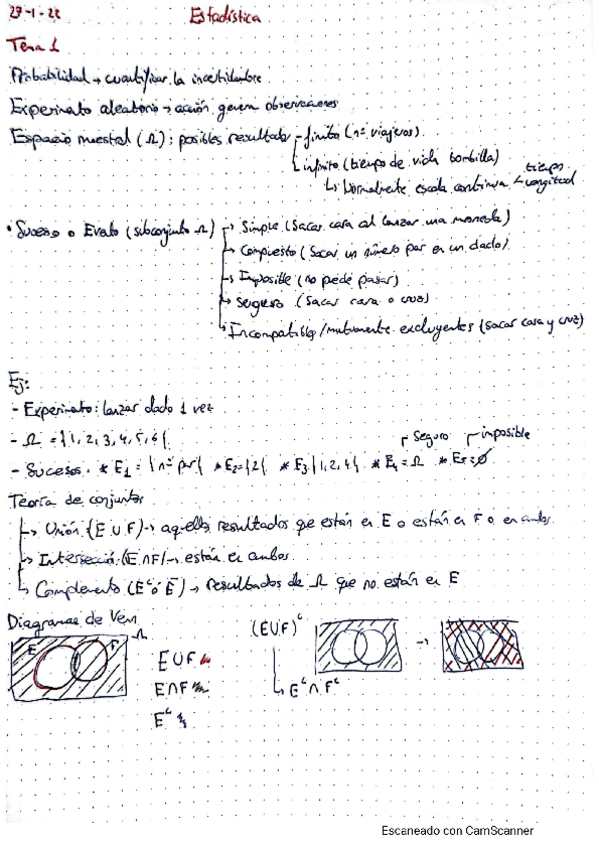 27-1-22 Estadística
Tema 1
Probabilidad → cuantificar la incertidumbre
Experimento aleatorio → acción genera observaciones
Espacio muestral (Ω): posibles resultados - finito (nº viajeros).
infinito (tiempo de vida bombilla)
↳ normalmente escala continua tiempo longitud
• Suceso o Evento (subconjunto Ω) → Simple (Sacar cara al lanzar una moneda)
→ Compuesto (Sacar un número par en un dado)
→ Imposible (no puede pasar)
→ Seguro (Sacar cara o cruz)
→ Incompatibles/mutuamente excluyentes (sacar cara y cruz)
Ej:
- Experimento: lanzar dado 1 vez
- Ω = {1, 2, 3, 4, 5, 6}
Seguro imposible
- Sucesos. * E1 = {nº par} * E2 = {2} * E3 {1, 2, 4} * E4 = Ω * E5 = ∅
Teoría de conjuntos
→ Unión (E ∪ F) → aquellos resultados que están en E o están en F o en ambos.
→ Intersección (E ∩ F) → están en ambos.
→ Complemento (Eᶜ ó Ē) → resultados de Ω que no están en E
Diagramas de Venn
Ω
E F
E ∪ F
E ∩ F
Eᶜ
(E ∪ F)ᶜ →
↳ Eᶜ ∩ Fᶜ
Escaneado con CamScanner